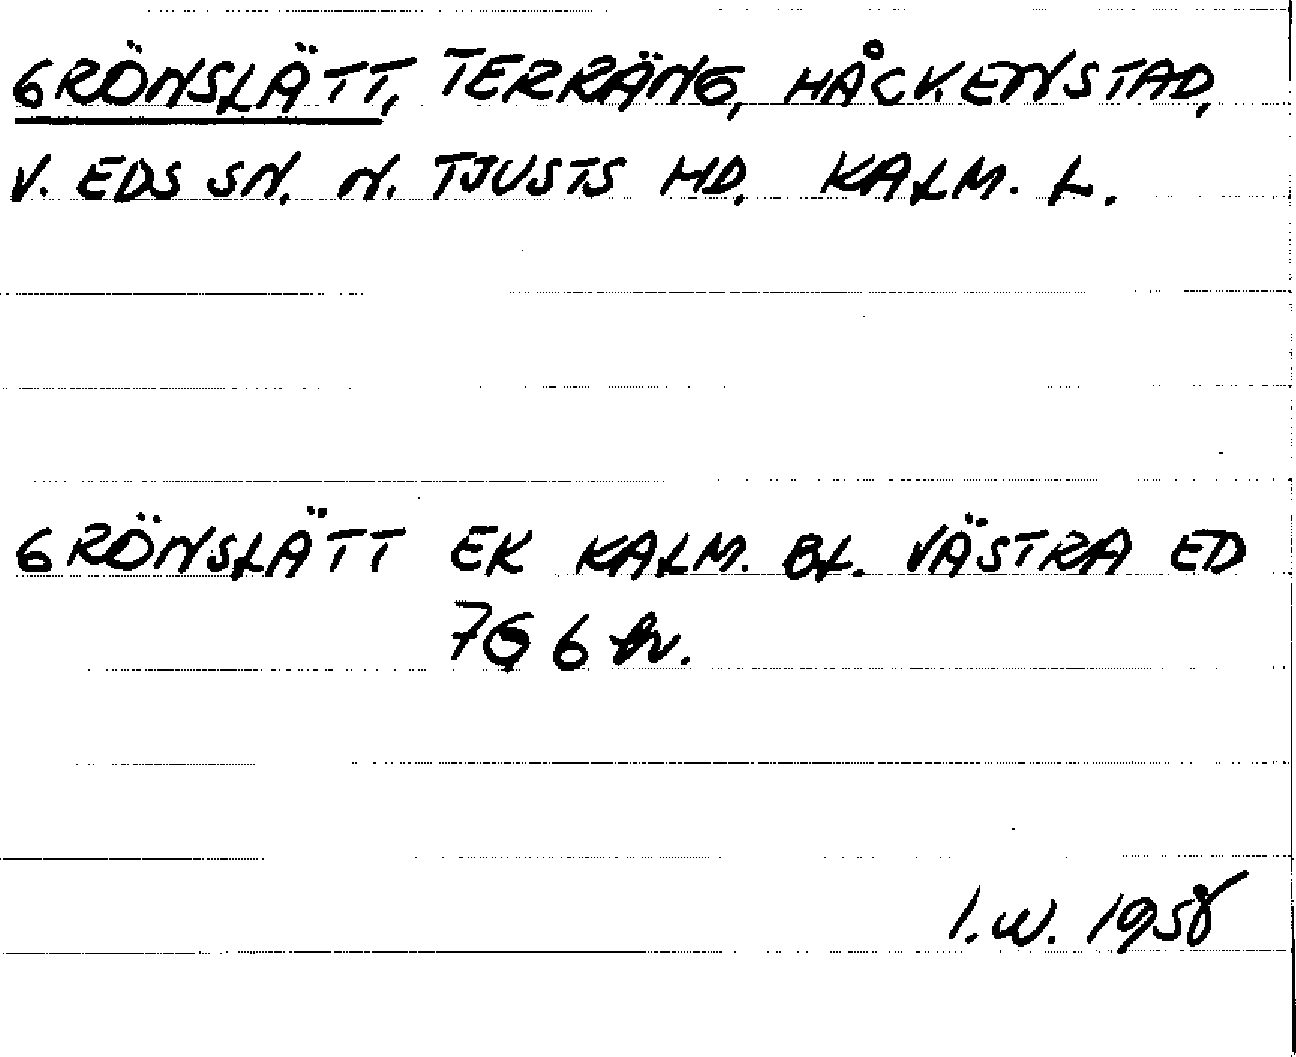 GRÖNSLÄTT, TERRÄNG, HÅCKENSTAD,
V. EDS SN. N. TJUSTS HD. KALM. L.
GRÖNSLÄTT EK KALM. BL. VÄSTRA ED
7G 6 br.
I.W. 1958